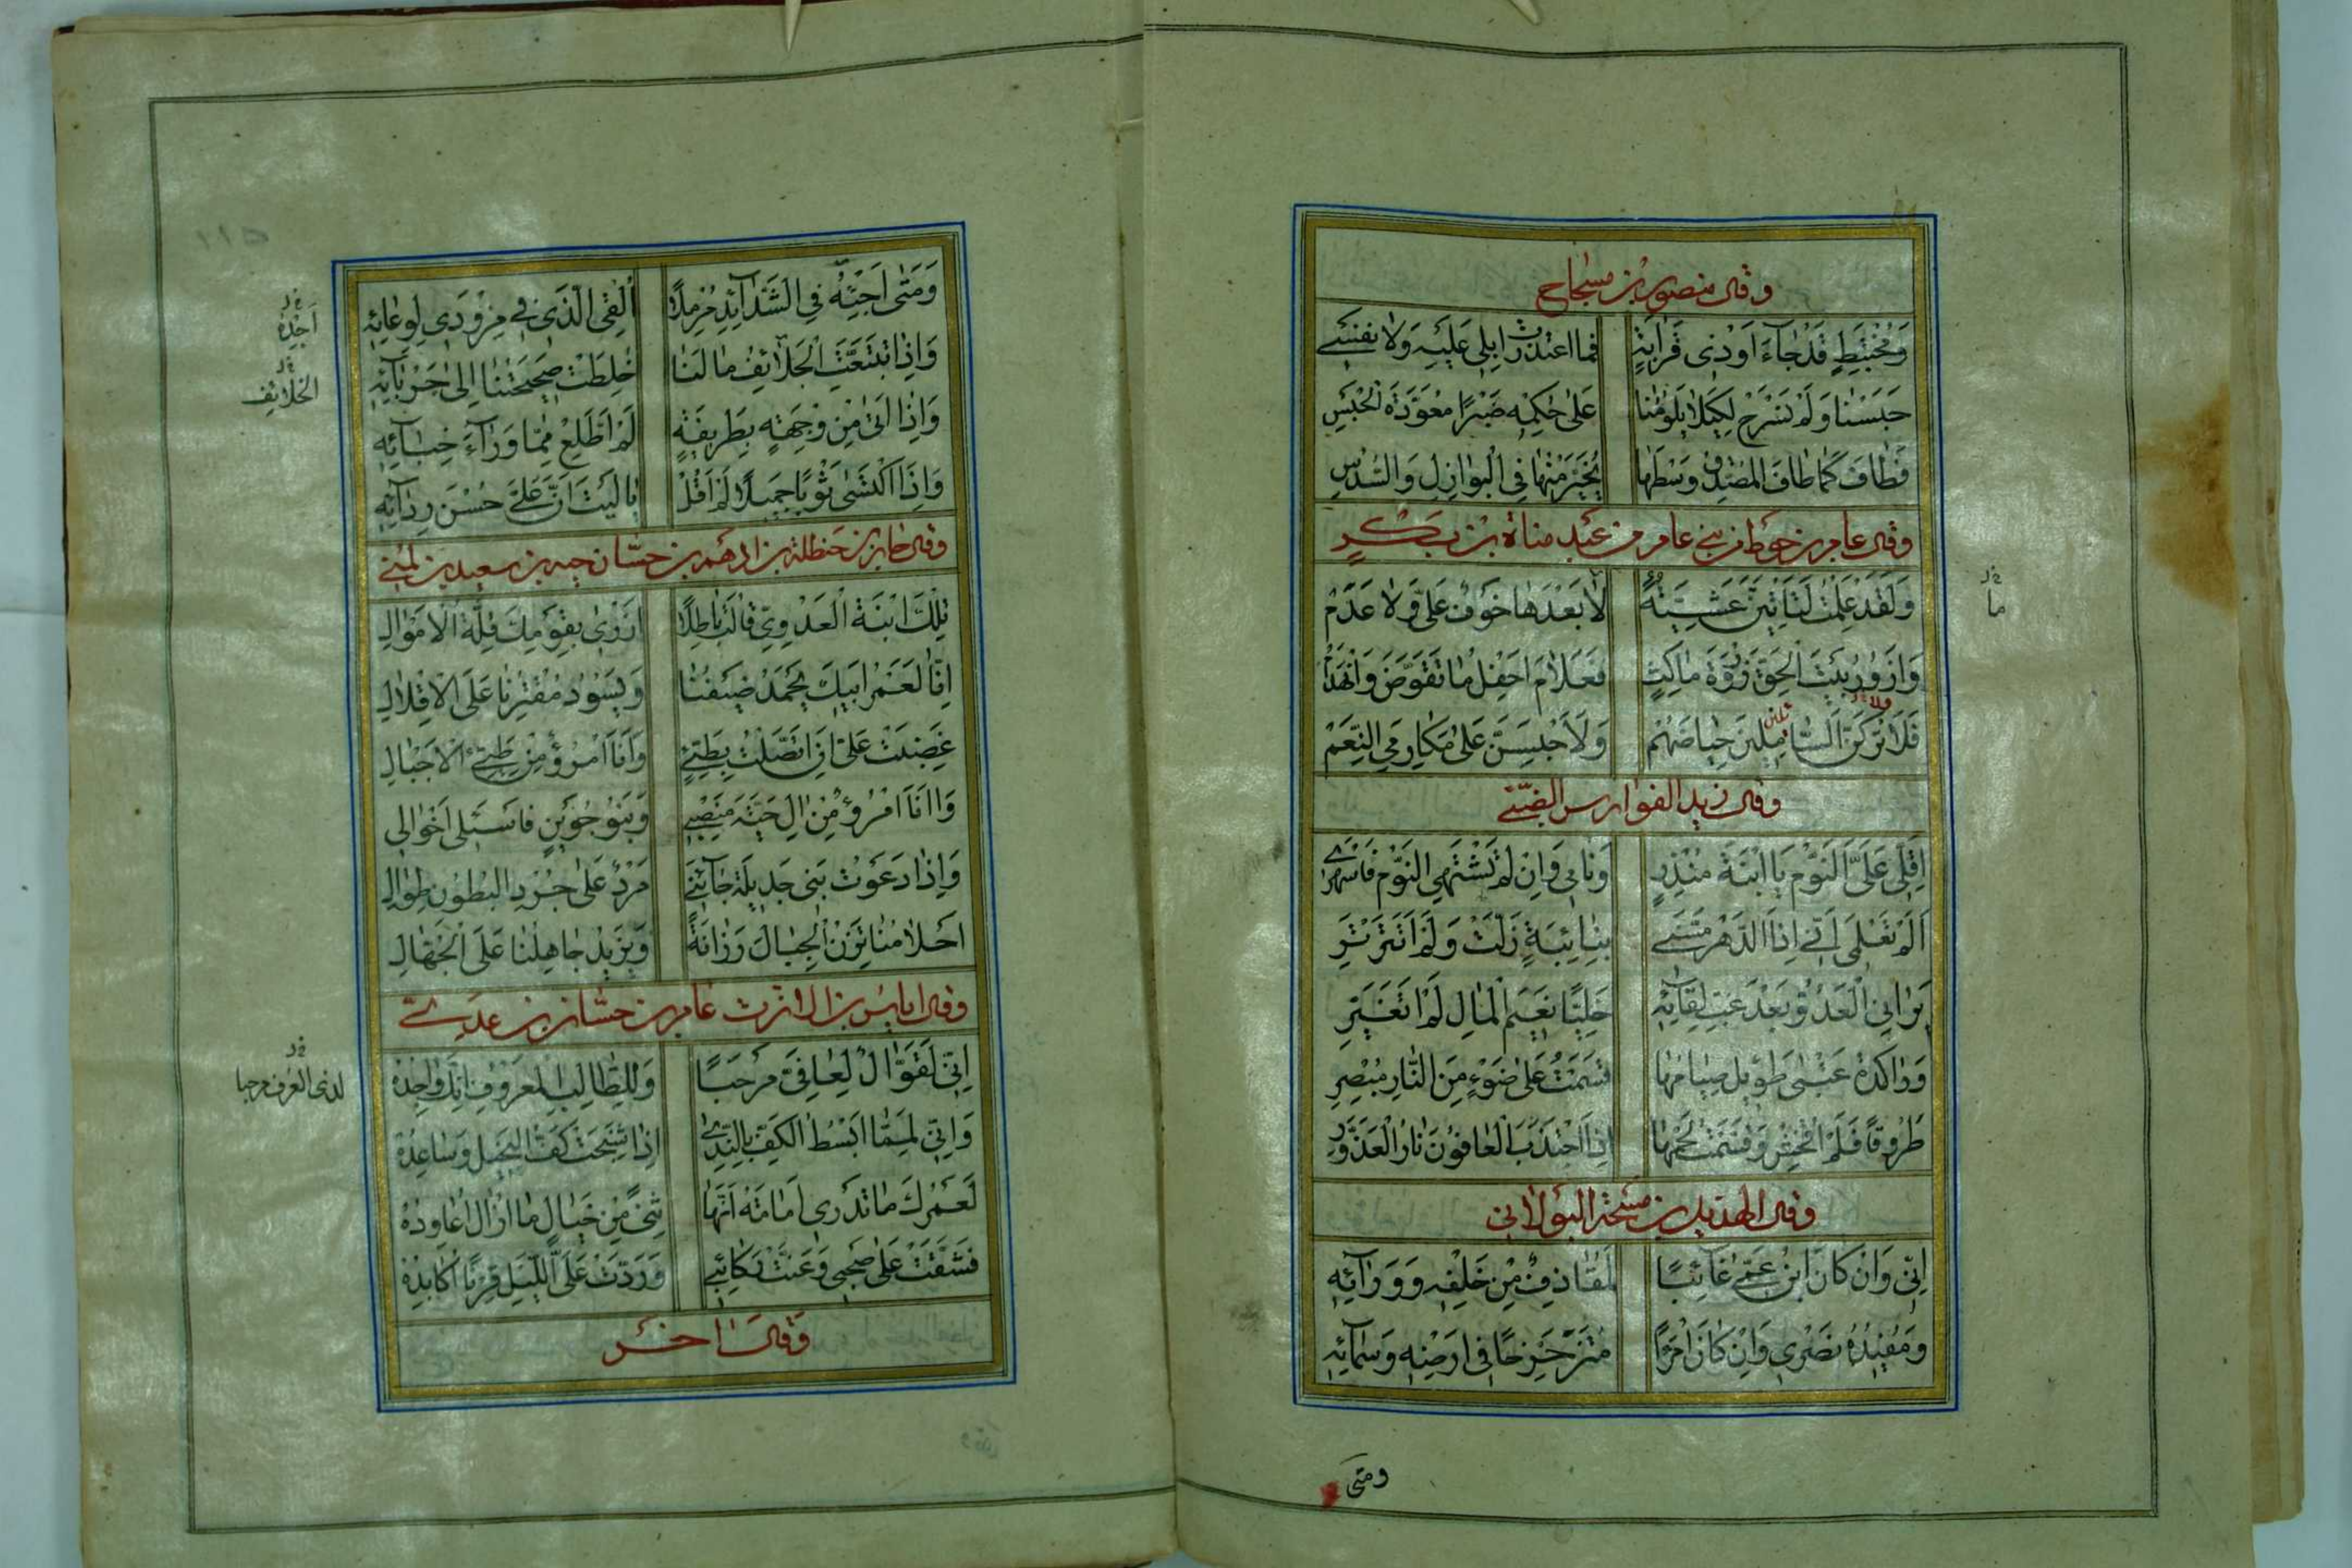 وقال منصور بن مسجاح
وَمُخْتَبِطٍ قَدْ جَاءَ اَوْ ذِى قَرَابَةٍ فَمَا اعْتَذَرَتْ اِبِلِى عَلَيْهِ وَلَا نَفْسِى
حَبَسْنَا وَلَمْ نَسْرَحْ لِكَيْلَا يَلُومَنَا عَلَى حُكْمِهِ صَبْرًا مُعَوَّدَةَ الْحَبْسِ
فَطَافَ كَمَا طَافَ الْمُصَدِّقُ وَسْطَهَا يُخَيَّرُ مِنْهَا فِى الْبَوَازِلِ وَالسُّدْسِ
وقال عامر بن حوط من بنى عامر بن عبد مناة بن بكر
وَلَقَدْ عَلِمْتُ لَتَأْتِيَنَّ عَشِيَّةٌ لَا بَعْدَهَا خَوْفٌ عَلَىَّ وَلَا عَدَمْ
ما
وَاَزُورُ بَيْتَ الْحَقِّ زَوْرَةَ مَاكِثٍ فَعَلَامَ اَحْفِلُ مَا تَقَوَّضَ وَانْهَدَمْ
فَلَاَتْرُكَنَّ السَّامِلِينَ حِيَاضَهُمْ وَلَاَحْبِسَنَّ عَلَى مَكَارِمِىَ النَّعَمْ
وقال زيد الفوارس الضبّى
اَقِلِّى عَلَىَّ النَّوْمَ يَا ابْنَةَ مُنْذِرٍ وَنَامِى وَاِنْ لَمْ تَشْتَهِى النَّوْمَ فَاسْهَرِى
اَلَمْ تَعْلَمِى اَنِّى اِذَا الدَّهْرُ مَسَّنِى بِنَائِبَةٍ زَلَّتْ وَلَمْ اَتَتَرْتَرِ
يَرَانِى الْعَدُوُّ بَعْدَ غِبِّ لِقَائِهِ خَلِيًّا نَعِيمَ الْمَالِ لَمْ اَتَغَيَّرِ
وَرَاكِدَةٍ عِنْدِى طَوِيلٍ صِيَامُهَا قَسَمْتُ عَلَى ضَوْءٍ مِنَ النَّارِ مُبْصِرِ
طُرُوقًا فَلَمْ اُفْحِشْ وَقَسَّمْتُ لَحْمَهَا اِذَا اجْتَنَبَ الْعَافُونَ نَارَ الْعَذَوَّرِ
وقال الهذيل بن مشجعة البولانى
اِنِّى وَاِنْ كَانَ ابْنُ عَمِّى غَائِبًا لَمُقَاذِفٌ مِنْ خَلْفِهِ وَوَرَائِهِ
وَمُفِيدُهُ نَصْرِى وَاِنْ كَانَ امْرَءًا مُتَزَحْزِحًا فِى اَرْضِهِ وَسَمَائِهِ
ومتى
١١٥
وَمَتَى اَجِئْهُ فِى الشَّدَائِدِ مُرْمِلًا اُلْقِى الَّذِى فِى مِزْوَدِى لِوِعَائِهِ
اَجِدْهُ
وَاِذَا تَتَبَّعَتِ الْجَلَائِفُ مَالَنَا خُلِطَتْ صَحِيحَتُنَا اِلَى جَرْبَائِهِ
الخلائف
وَاِذَا اَتَى مِنْ وِجْهَةٍ بِطَرِيفَةٍ لَمْ اَطَّلِعْ مِمَّا وَرَاءَ خِبَائِهِ
وَاِذَا اكْتَسَى ثَوْبًا جَمِيلًا لَمْ اَقُلْ يَا لَيْتَ اَنَّ عَلَىَّ حُسْنَ رِدَائِهِ
تِلْكَ ابْنَةُ الْعَدَوِىِّ قَالَتْ بَاطِلًا اَزْرَى بِقَوْمِكَ قِلَّةُ الْاَمْوَالِ
اِنَّا لَعَمْرُ اَبِيكِ يَحْمَدُ ضَيْفُنَا وَيَسُودُ مُقْتِرُنَا عَلَى الْاِقْلَالِ
غَضِبَتْ عَلَىَّ اَنِ اتَّصَلْتُ بِطَيِّئٍ وَاَنَا امْرُؤٌ مِنْ طَيِّئِ الْاَجْبَالِ
وَاَنَا امْرُؤٌ مِنْ اٰلِ حَيَّةَ مَنْصِبِى وَبَنُو جُوَيْنٍ فَاسْئَلِى اَخْوَالِى
وَاِذَا دَعَوْتُ بَنِى جَدِيلَةَ جَاءَنِى مُرْدٌ عَلَى جُرْدِ الْبُطُونِ طِوَالِ
اَحْلَامُنَا تَزِنُ الْجِبَالَ رَزَانَةً وَيَزِيدُ جَاهِلُنَا عَلَى الْجُهَّالِ
وقال اياس بن الارت عامر بن حسّان بن عدى
اِنِّى لَقَوَّالٌ لِعَافِىَّ مَرْحَبًا وَلِلطَّالِبِ الْمَعْرُوفِ اِنَّكَ وَاجِدُهْ
لدى العرف مرحبا
وَاِنِّى لَمِمَّا اَبْسُطُ الْكَفَّ بِالنَّدَى اِذَا شَنِجَتْ كَفُّ الْبَخِيلِ وَسَاعِدُهْ
لَعَمْرُكَ مَا تَدْرِى اُمَامَةُ اَنَّهَا ثِنًى مِنْ خَيَالٍ مَا اَزَالُ اُعَاوِدُهْ
فَشَقَّتْ عَلَى صَحْبِى وَعَنَّتْ رَكَائِبِى وَرَدَّتْ عَلَىَّ اللَّيْلَ قِرْنًا اُكَابِدُهْ
وقال اخر